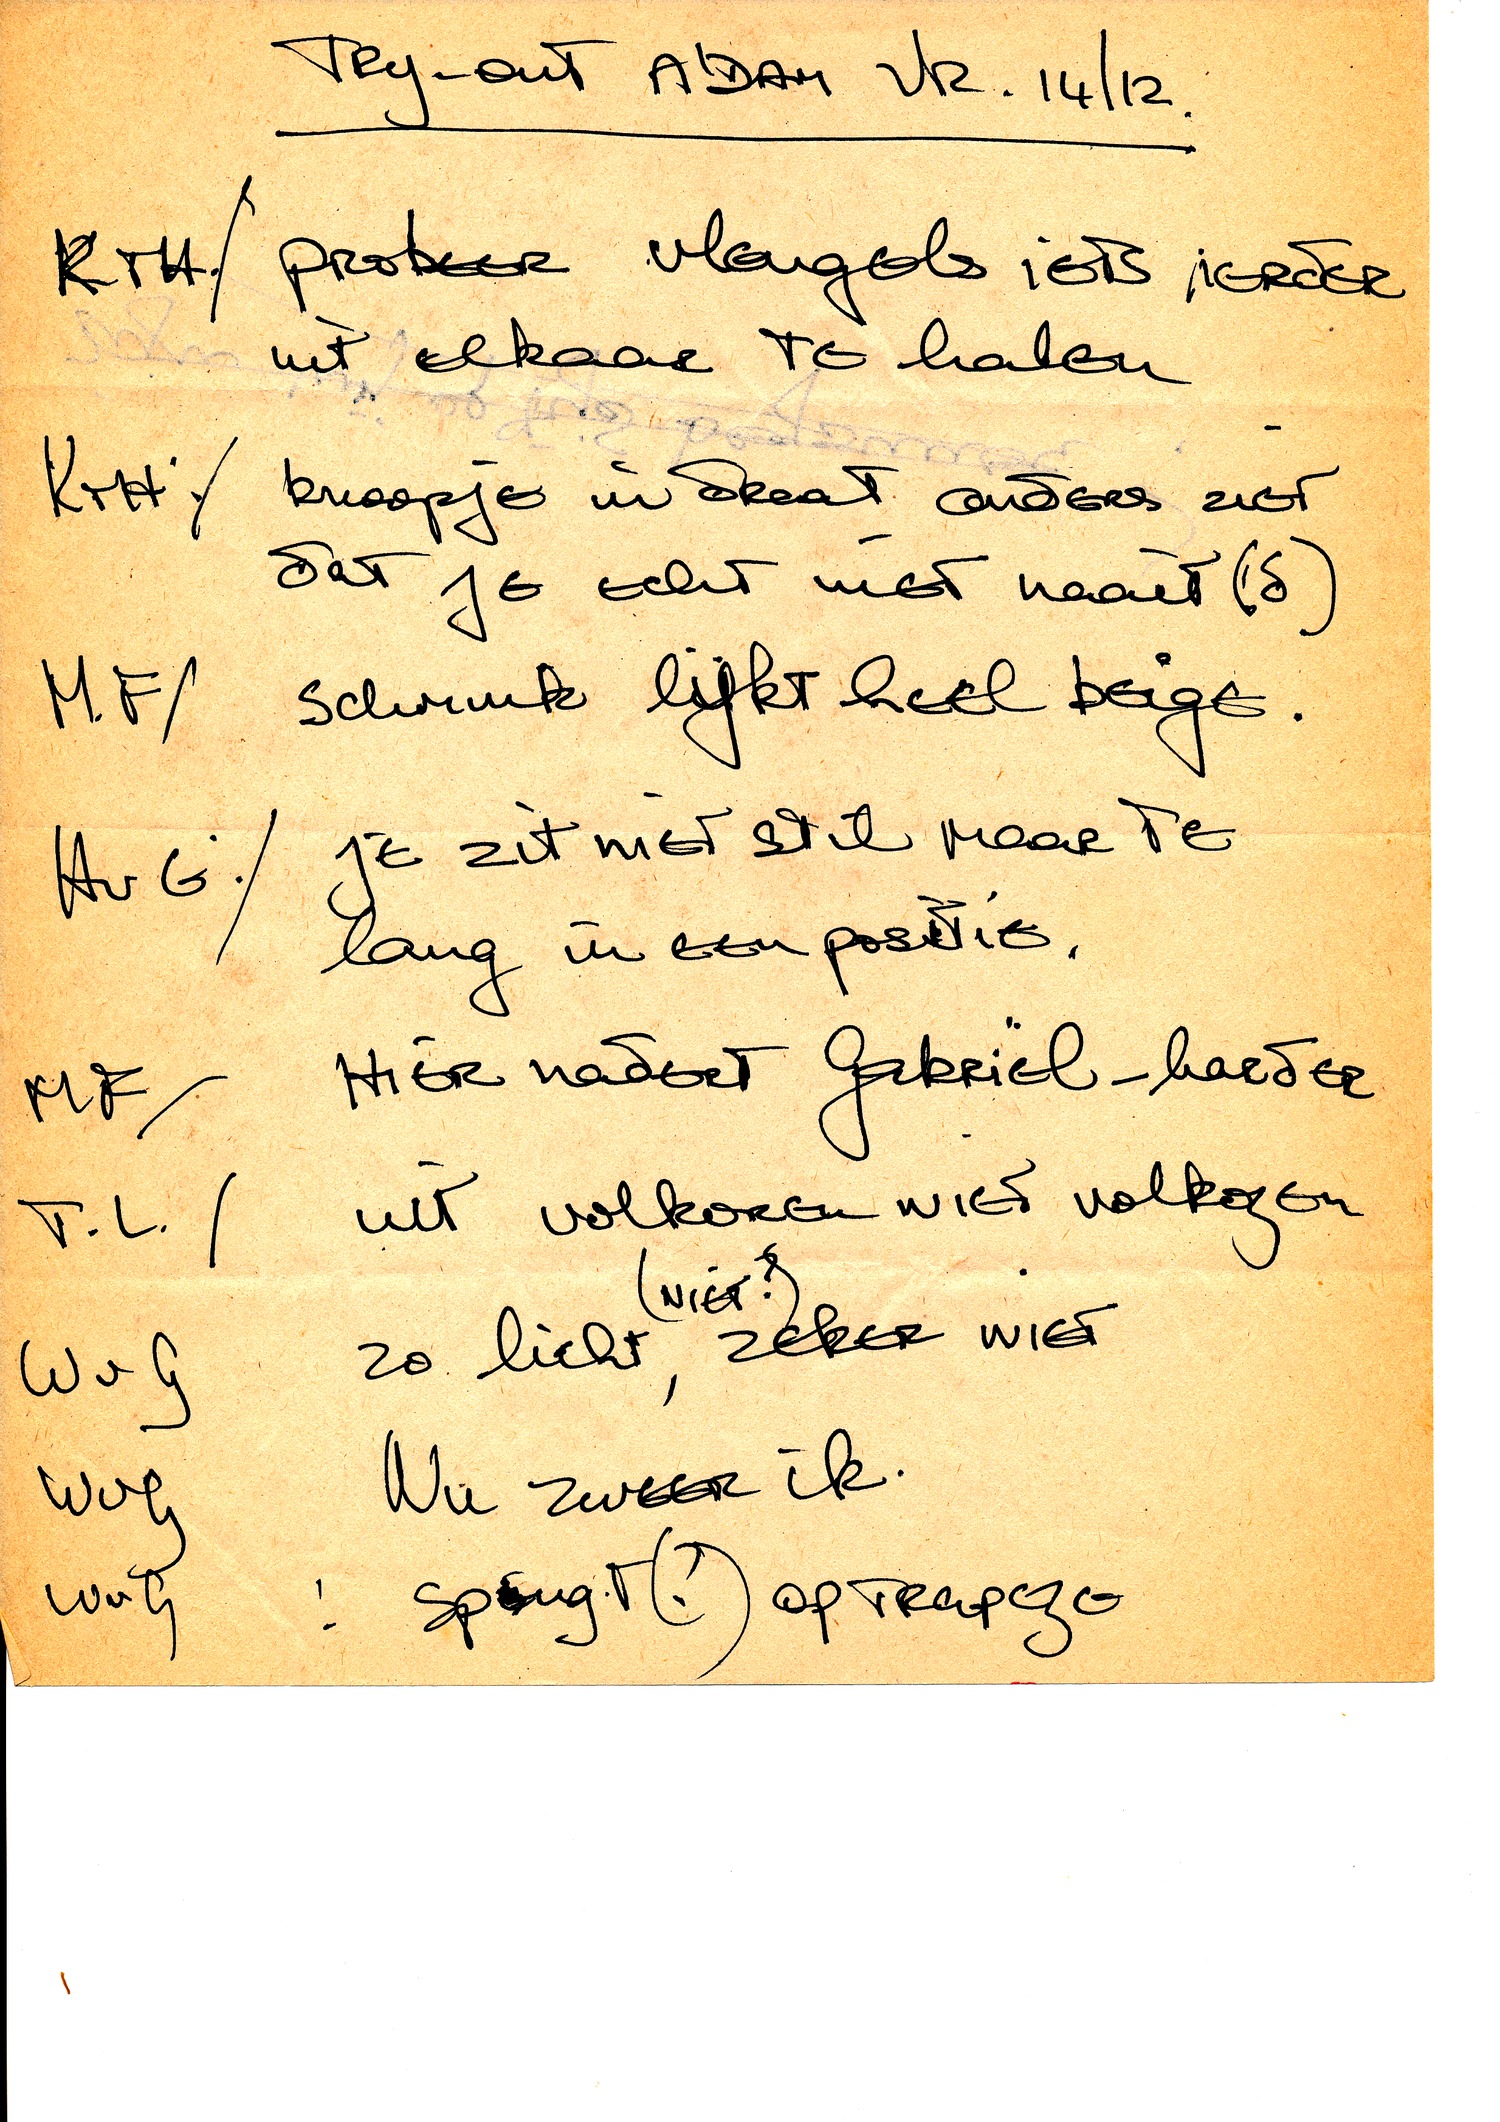 Try-out A'DAM VR. 14/12.
KtH./ probeer vleugels iets verder
uit elkaar te halen
KtH./ knoopje in draat anders ziet
dat je echt niet naait (!d)
M.F/ schmink lijkt heel beige.
HvG./ je zit niet stil maar te
lang in een positie.
MF/ Hier nadert Gabriël - harder
T.L./ uit volkoren niet volkozen
(niet?)
WvG zo licht, zeker niet
WvG Nu zweer ik.
WvG ! spingt (!) op trapeze